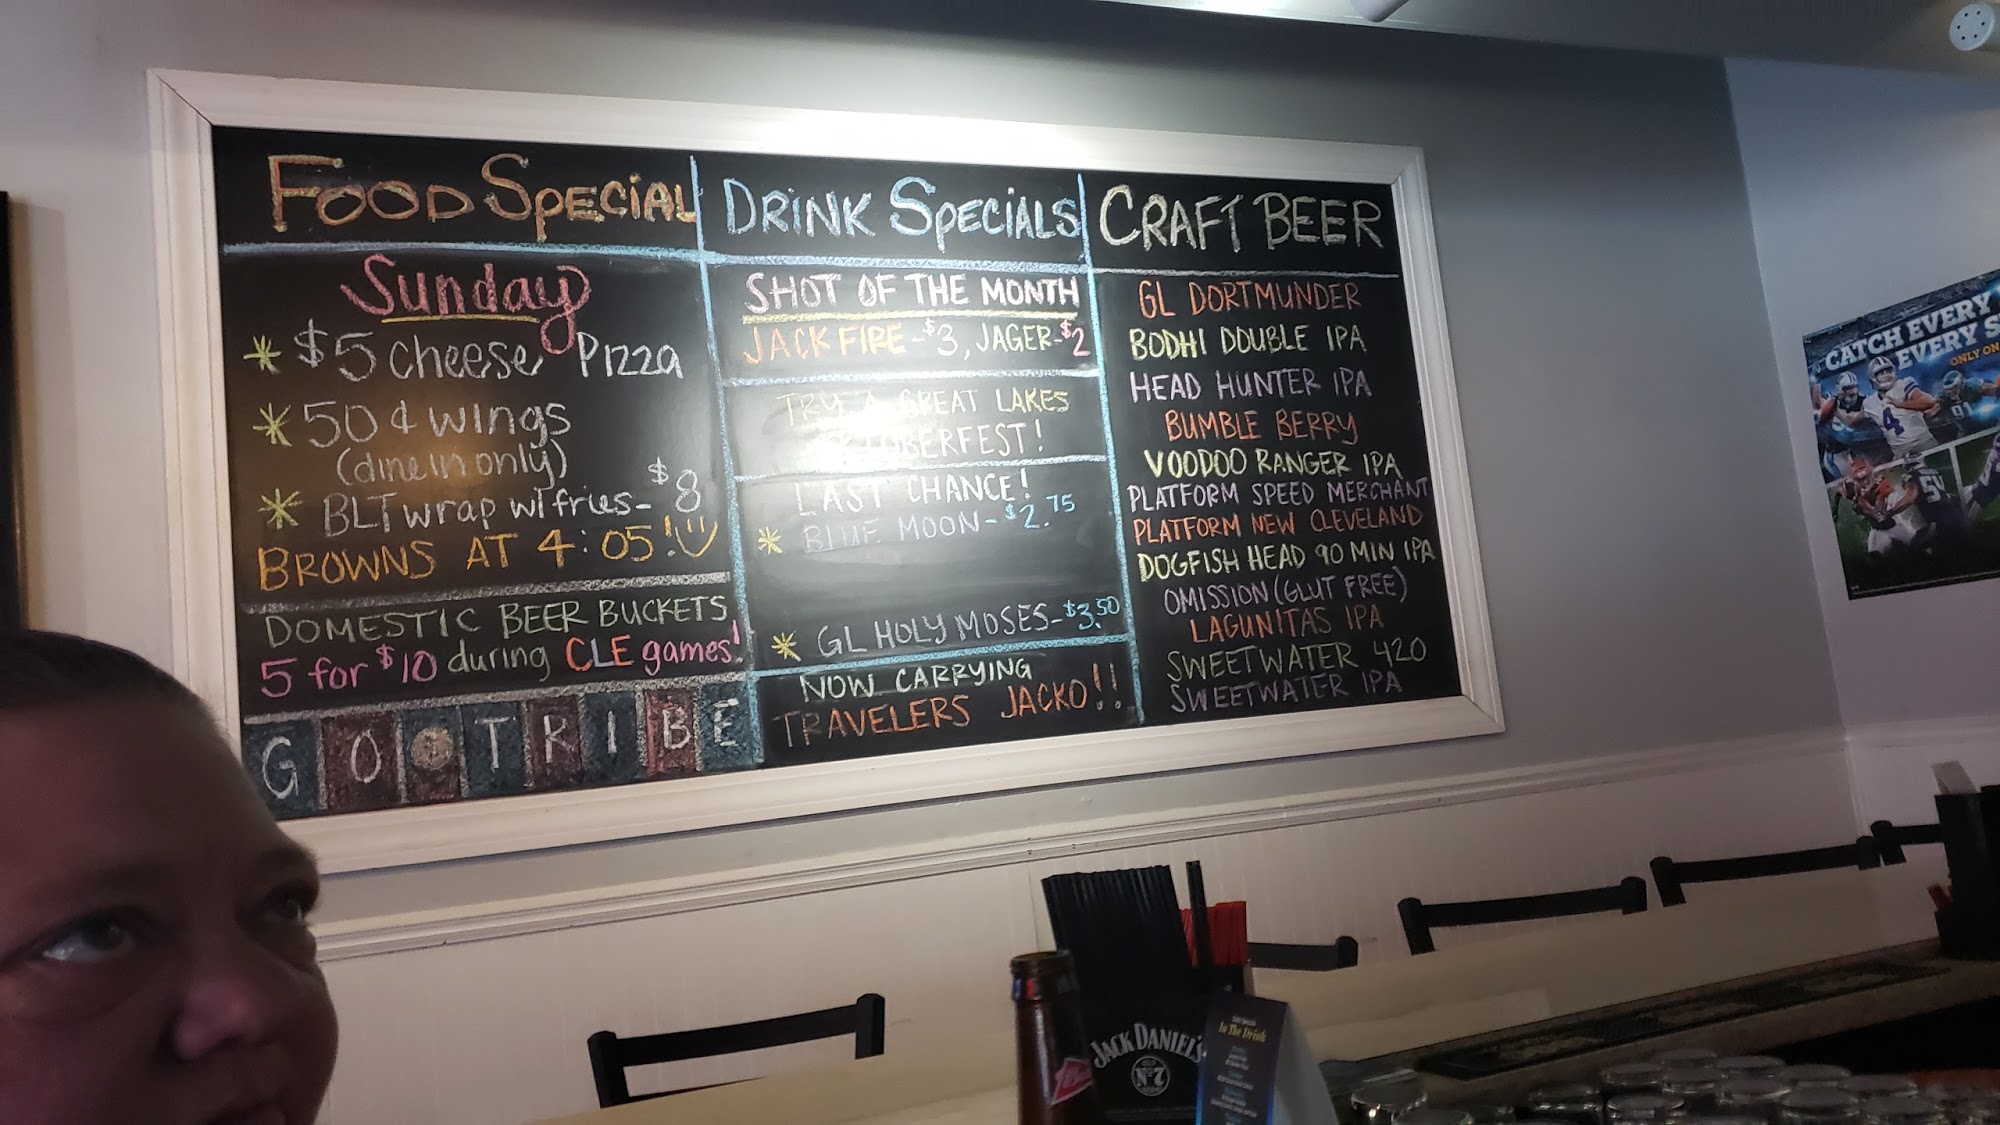 FOOD SPECIAL
Sunday
* $5 cheese Pizza
* 50¢ wings
(dine in only)
* BLT wrap w/ fries - $8
BROWNS AT 4:05!
DOMESTIC BEER BUCKETS
5 for $10 during CLE games!
GO TRIBE
DRINK SPECIALS
SHOT OF THE MONTH
JACK FIRE - $3, JAGER - $2
TRY A GREAT LAKES
OKTOBERFEST!
LAST CHANCE!
* BLUE MOON - $2.75
* GL HOLY MOSES - $3.50
NOW CARRYING
TRAVELERS JACKO!!
CRAFT BEER
GL DORTMUNDER
BODHI DOUBLE IPA
HEAD HUNTER IPA
BUMBLE BERRY
VOODOO RANGER IPA
PLATFORM SPEED MERCHANT
PLATFORM NEW CLEVELAND
DOGFISH HEAD 90 MIN IPA
OMISSION (GLUT FREE)
LAGUNITAS IPA
SWEETWATER 420
SWEETWATER IPA
CATCH EVERY
EVERY
ONLY ON
JACK DANIEL'S
No 7
In The Drink